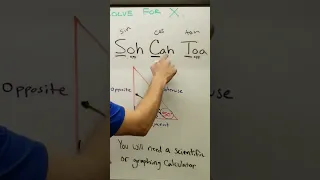 SOLVE FOR X.
sin cos tan
Soh Cah Toa
opp opp
Opposite
You will need a scientific
or graphing Calculator